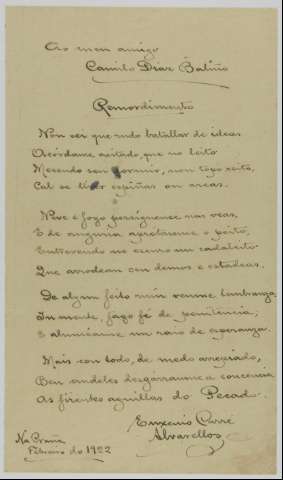 Ao meu amigo
Camilo Díaz Baliño
Remordimento
Non sei que rudo batallar de ideas
Acórdame axitado, que no leito
Mesendo son, non topo xeito,
Cal se espiñas ou areas.
Neve e fogo persíguense nas veas,
E de anguria apretáseme o peito,
Entrevendo no escuro un cadaleito
Que arrodean cen demos e estadeas.
De algun feito ruin venme lembranza,
In mente, fago fé de penitencia;
E aluméame un raio de espranza.
Mais con todo, de medo arreguiado,
Ben andeles desgárranme a concencia
As firentes aguillas do Pecado.
Euxenio Carré
Alvarellos
Na Cruña
Febreiro do 1922